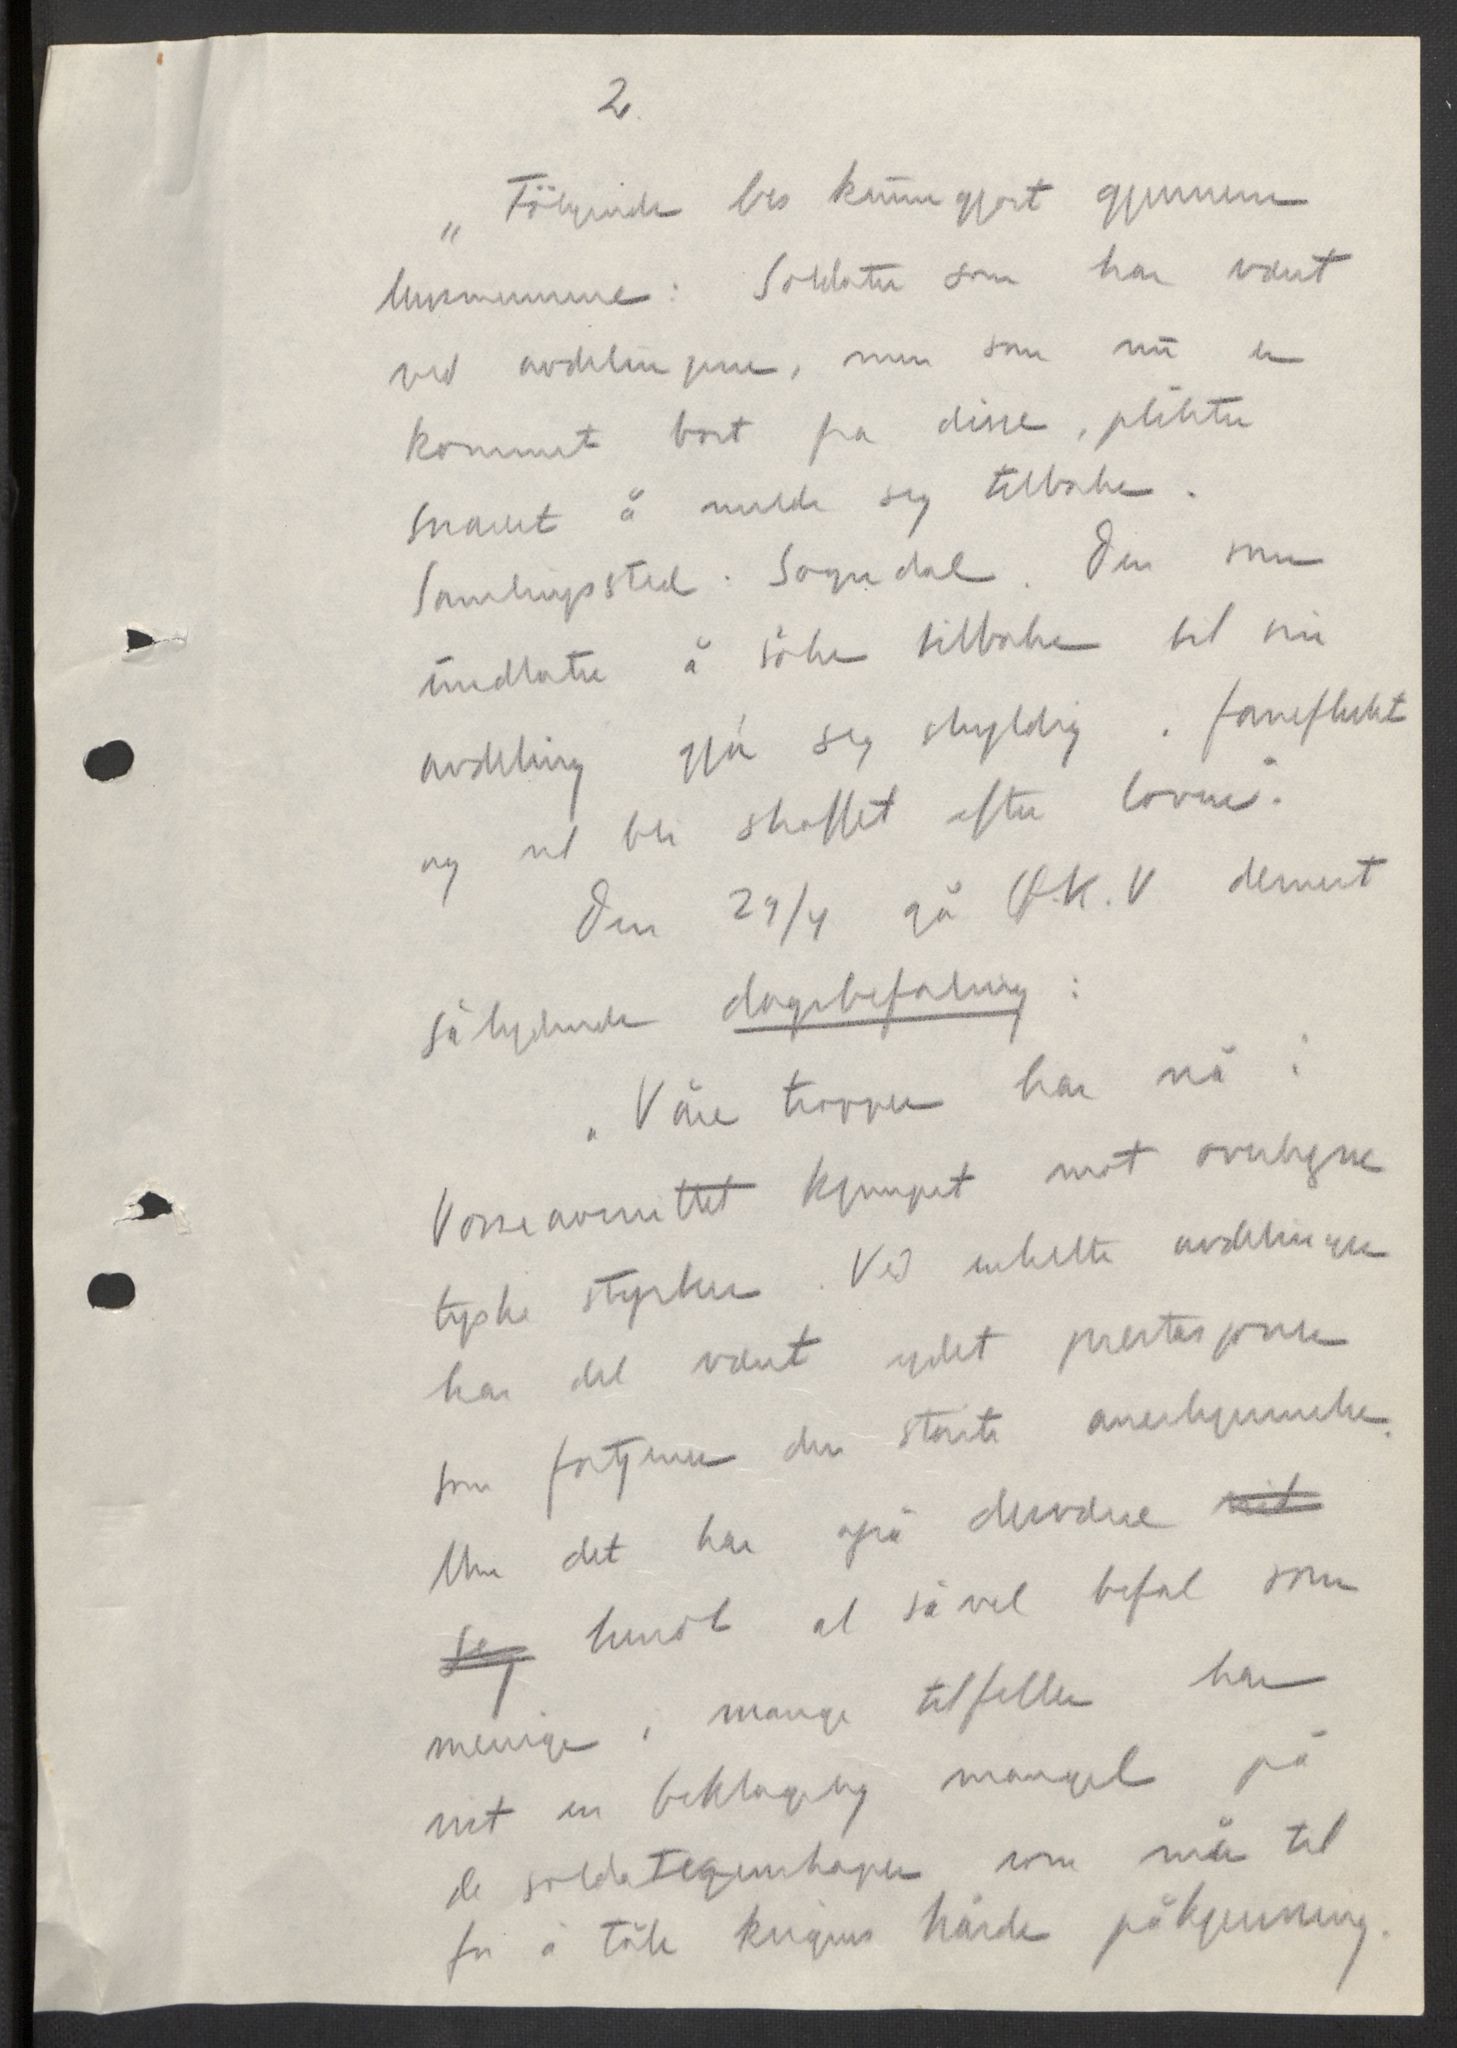 2.
„Följende bes kunngjort gjennem
lensmennene: Soldater som har vært
ved avdelingene, men som nu er
kommet bort fra disse, plikter
snarest å melde seg tilbake.
Samlingssted: Sogndal. Den som
undlater å söke tilbake til sin
avdeling gjör seg skyldig i faneflukt
og vil bli straffet efter loven".
Den 29/4 gå Ö.K.V dernest
sålydende dagsbefaling:
„Våre tropper har nå i
Vosseavsnittet kjempet mot overlegne
tyske styrker. Ved enkelte avdelinger
har det vært ydet prestasjoner
som fortjener den störste anerkjennelse.
Men det har også dessverre vist
seg hendt at såvel befal som
menige i mange tilfeller har
vist en beklagelig mangel på
de soldategenskaper som må til
for å tåle krigens hårde påkjenning.